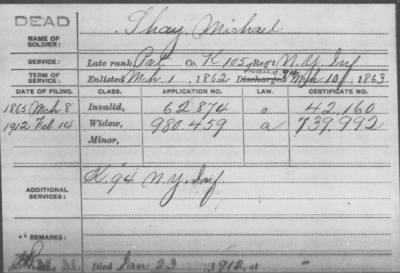 DEAD
NAME OF SOLDIER: Shay Michael
SERVICE: Late rank, Pvt Co. K 105 Reg't N.Y. Inf
TERM OF SERVICE: Enlisted Mch. 1, 1862 Discharged Mch 10, 1863.
DATE OF FILING. CLASS. APPLICATION NO. LAW. CERTIFICATE NO.
1865 Mch 8 Invalid, 62874 o 42.160
1912 Feb 14 Widow, 980.459 a 739.992
Minor,
ADDITIONAL SERVICES: K. 94 N.Y. Inf
REMARKS:
M. Died Jan 23 1912, at -